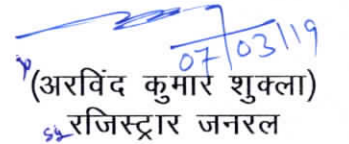 07/03/19
(अरविंद कुमार शुक्ला)
रजिस्ट्रार जनरल